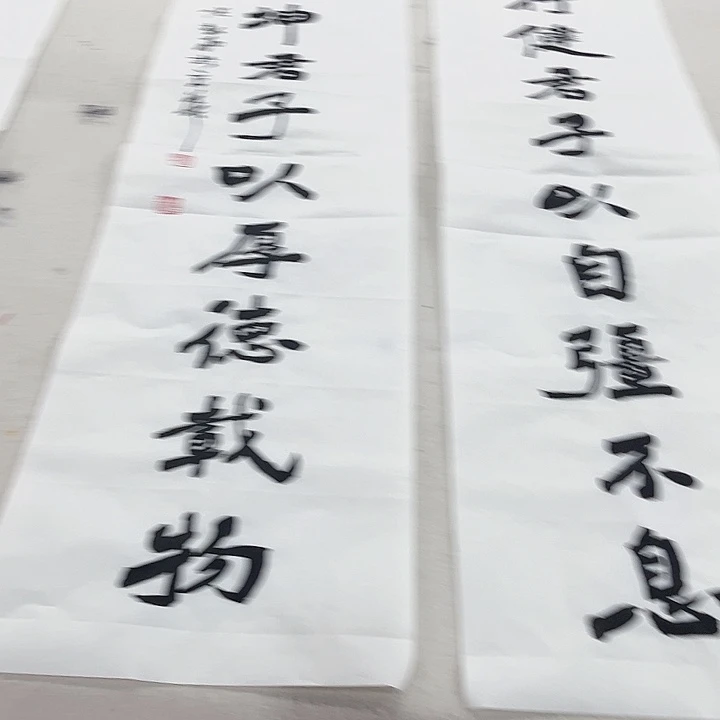 行健君子以自彊不息
坤君子以厚德載物